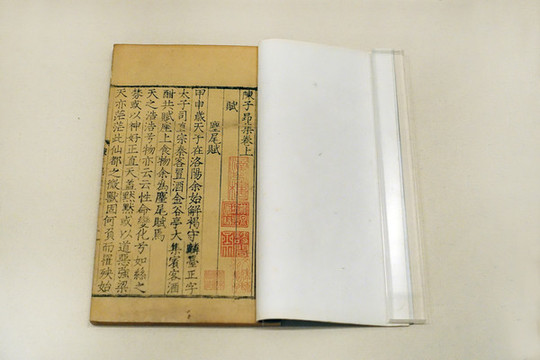 陳子昂集卷上
賦
麈尾賦
甲申歲天子在洛陽余始解褐守麟臺正字
太子司直宗秦客置酒金谷亭大集賓客酒
酣共賦座上食物余為麈尾賦焉
天之浩浩兮物亦云云性命變化兮如絲之
棼或以神好正直天蓋默默或以道惡強梁
天亦茫茫此仙都之微獸因何負而罹殃始